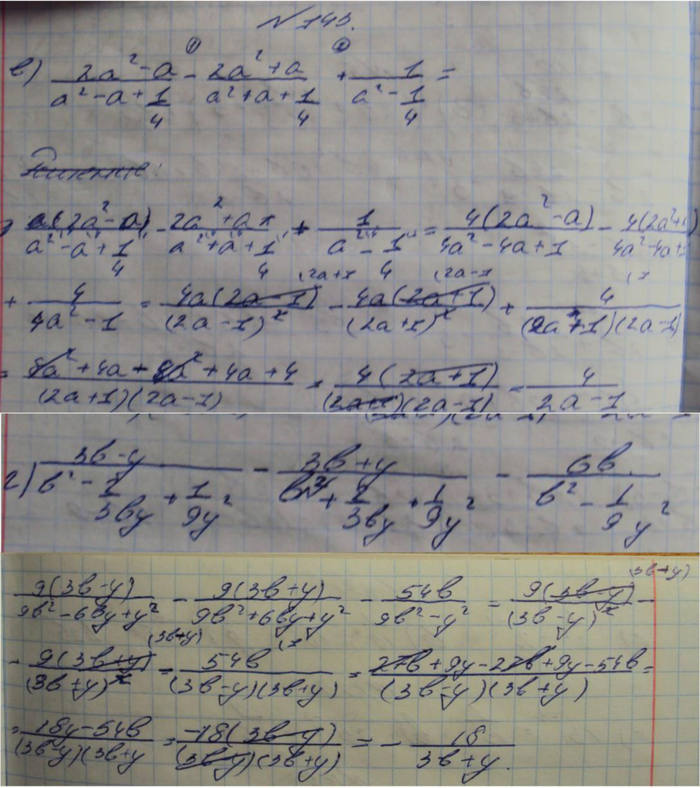 N 143.
в) (2a²-a)/(a²-a+1/4) ① - (2a²+a)/(a²+a+1/4) ② + 1/(a²-1/4) =
(2a²-a)/(a²-a+1/4) - (2a²+a)/(a²+a+1/4) + 1/(a²-1/4) = 4(2a²-a)/(4a²-4a+1) - 4(2a²+
+ 4/(4a²-1) = 4a(2a-1)/(2a-1)² (2a+1 - 4a(2a+1)/(2a+1)² (2a-1 + 4/((2a+1)(2a-1)
= (8a²+4a-8a²+4a+4)/((2a+1)(2a-1)) = 4(2a+1)/((2a+1)(2a-1)) = 4/(2a-1)
г) (3b-y)/(b²-1/3by+1/9y²) - (3b+y)/(b²+1/3by+1/9y²) - 6b/(b²-1/9y²)
9(3b-y)/(9b²-6by+y²) - 9(3b+y)/(9b²+6by+y²) - 54b/(9b²-y²) = 9(3b-y)/(3b-y)² (3b+y) -
- 9(3b+y)/(3b+y)² - 54b/((3b-y)(3b+y)) = (27b+9y-27b+9y-54b)/((3b-y)(3b+y)) =
= (18y-54b)/((3b-y)(3b+y) = -18(3b-y)/((3b-y)(3b+y)) = - 18/(3b+y).